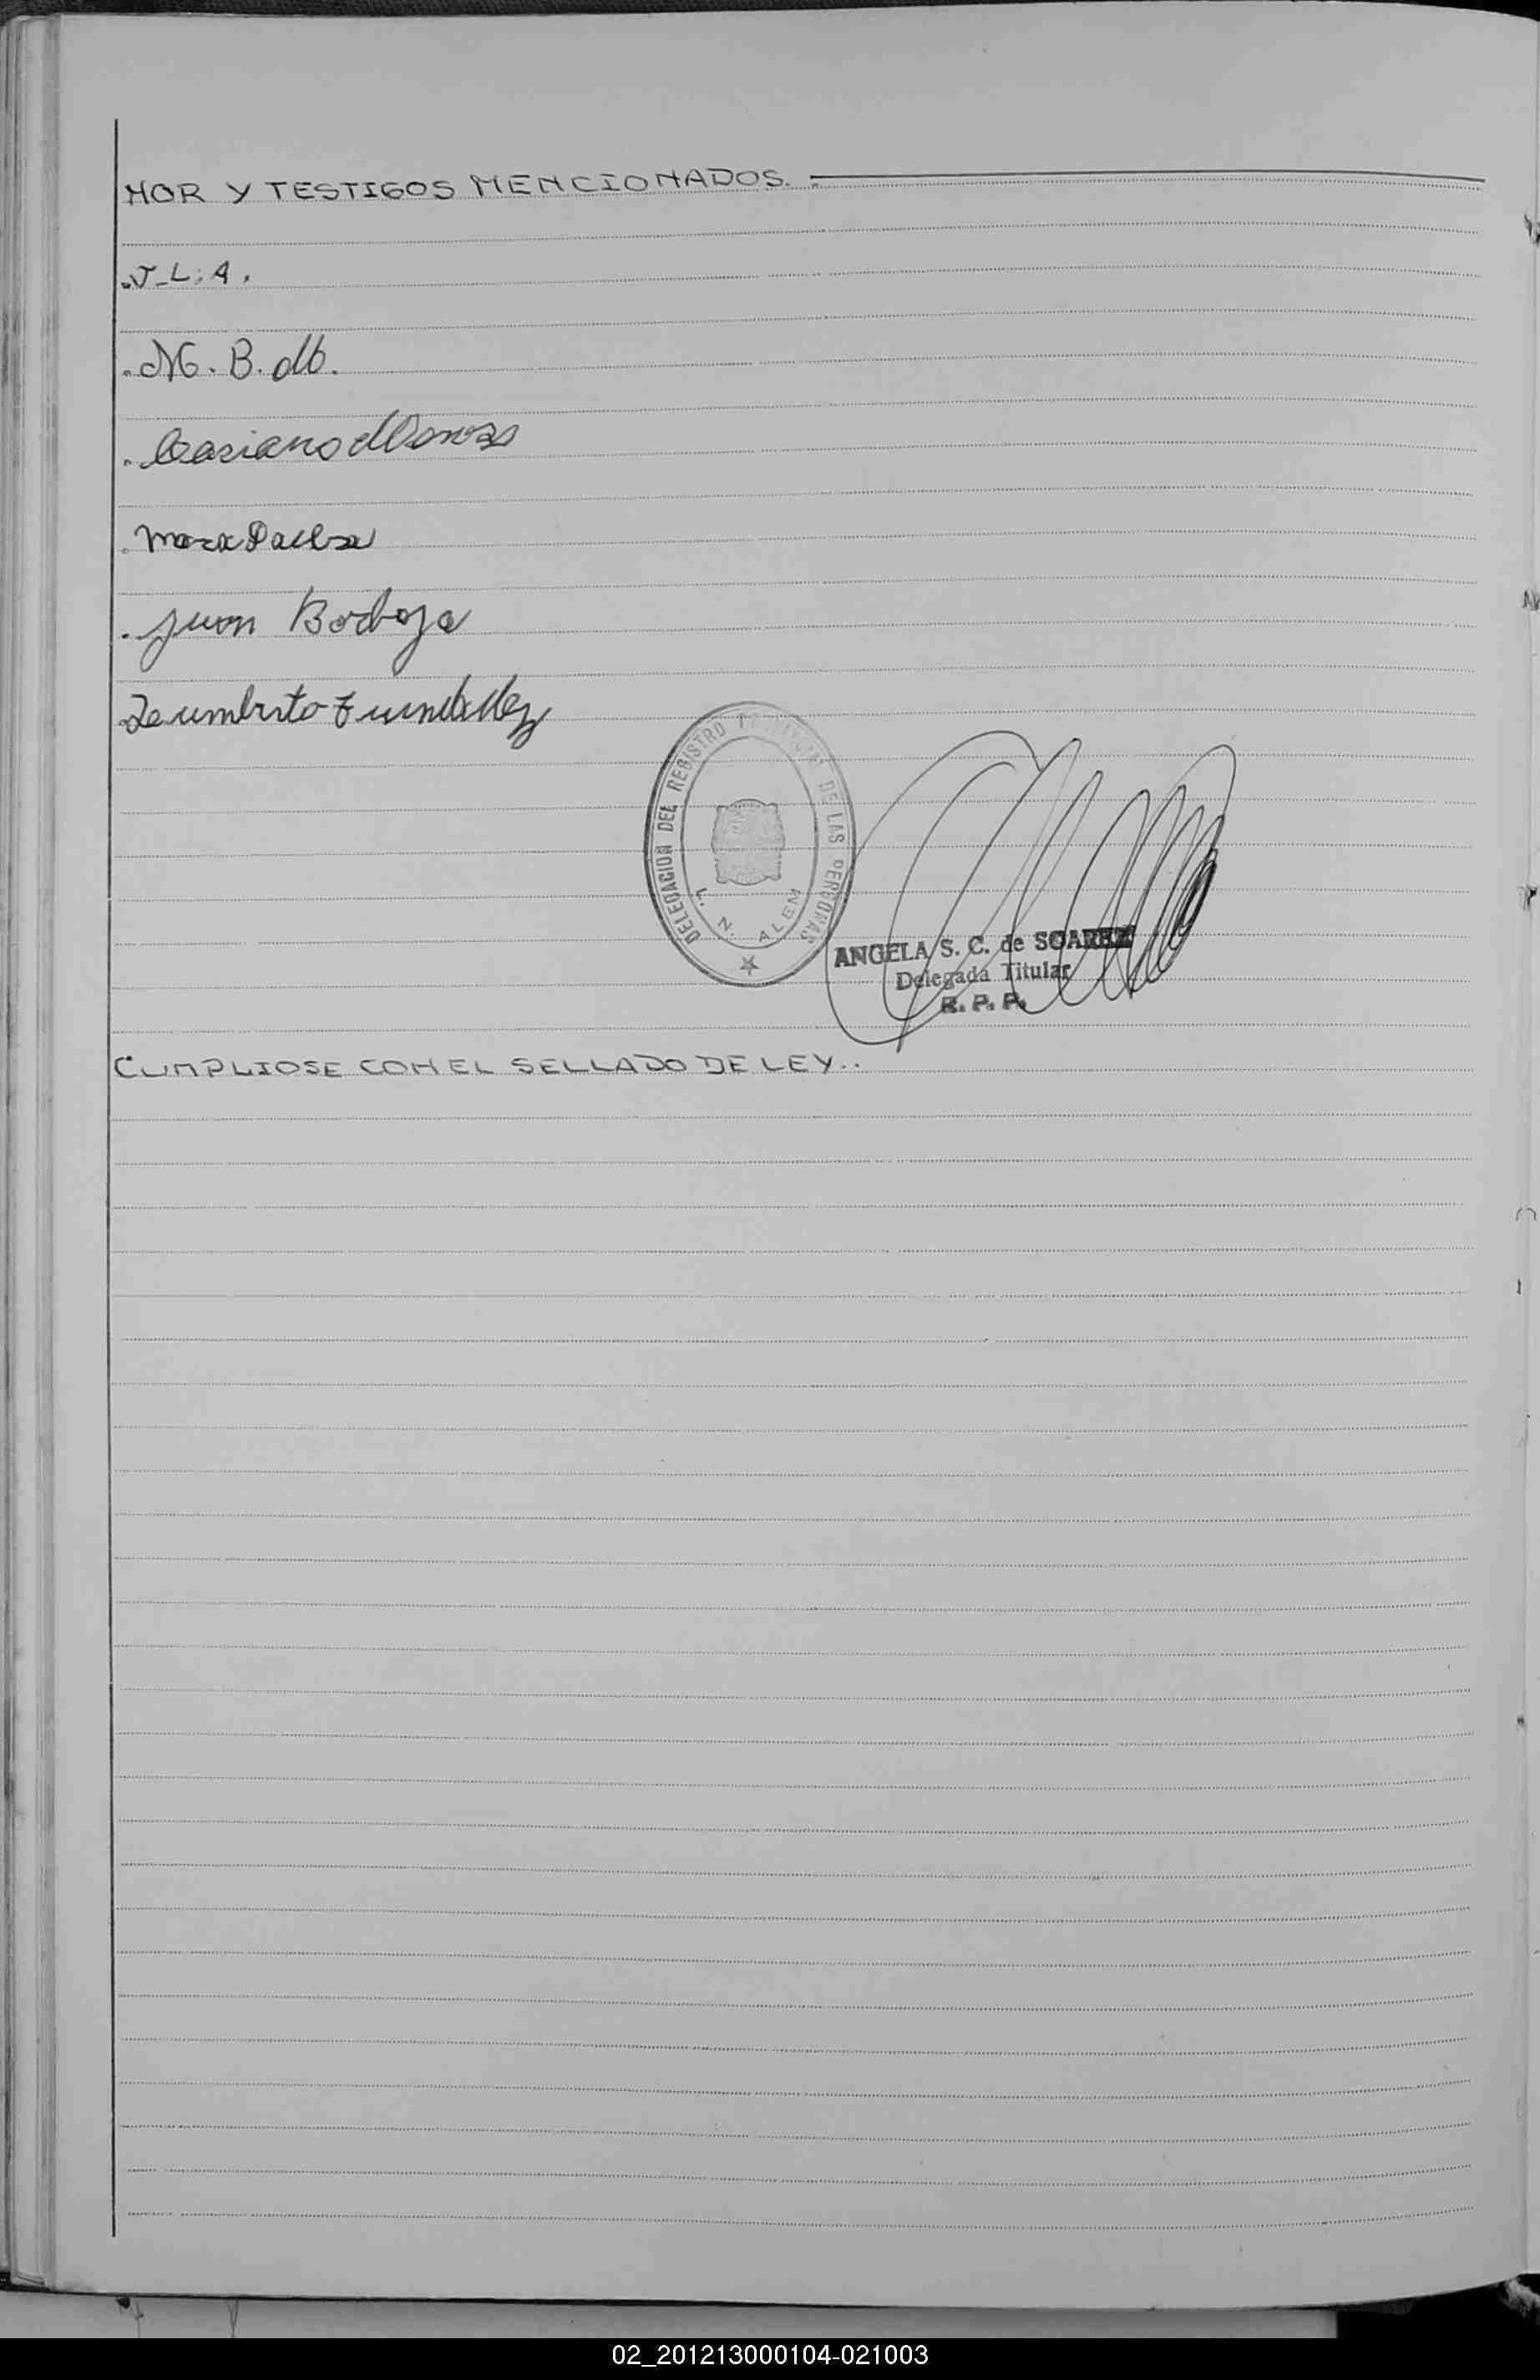 NOR Y TESTIGOS MENCIONADOS. .
.J_L.A.
.M.B.
. Mora
. Juan Borboza
DELEGACION DEL REGISTRO PROVINCIAL DE LAS PERSONAS
L. N. ALEM
ANGELA S. C. de SOAREZ
Delegada Titular
R. P. P.
CUMPLIOSE CON EL SELLADO DE LEY..
02_201213000104-021003